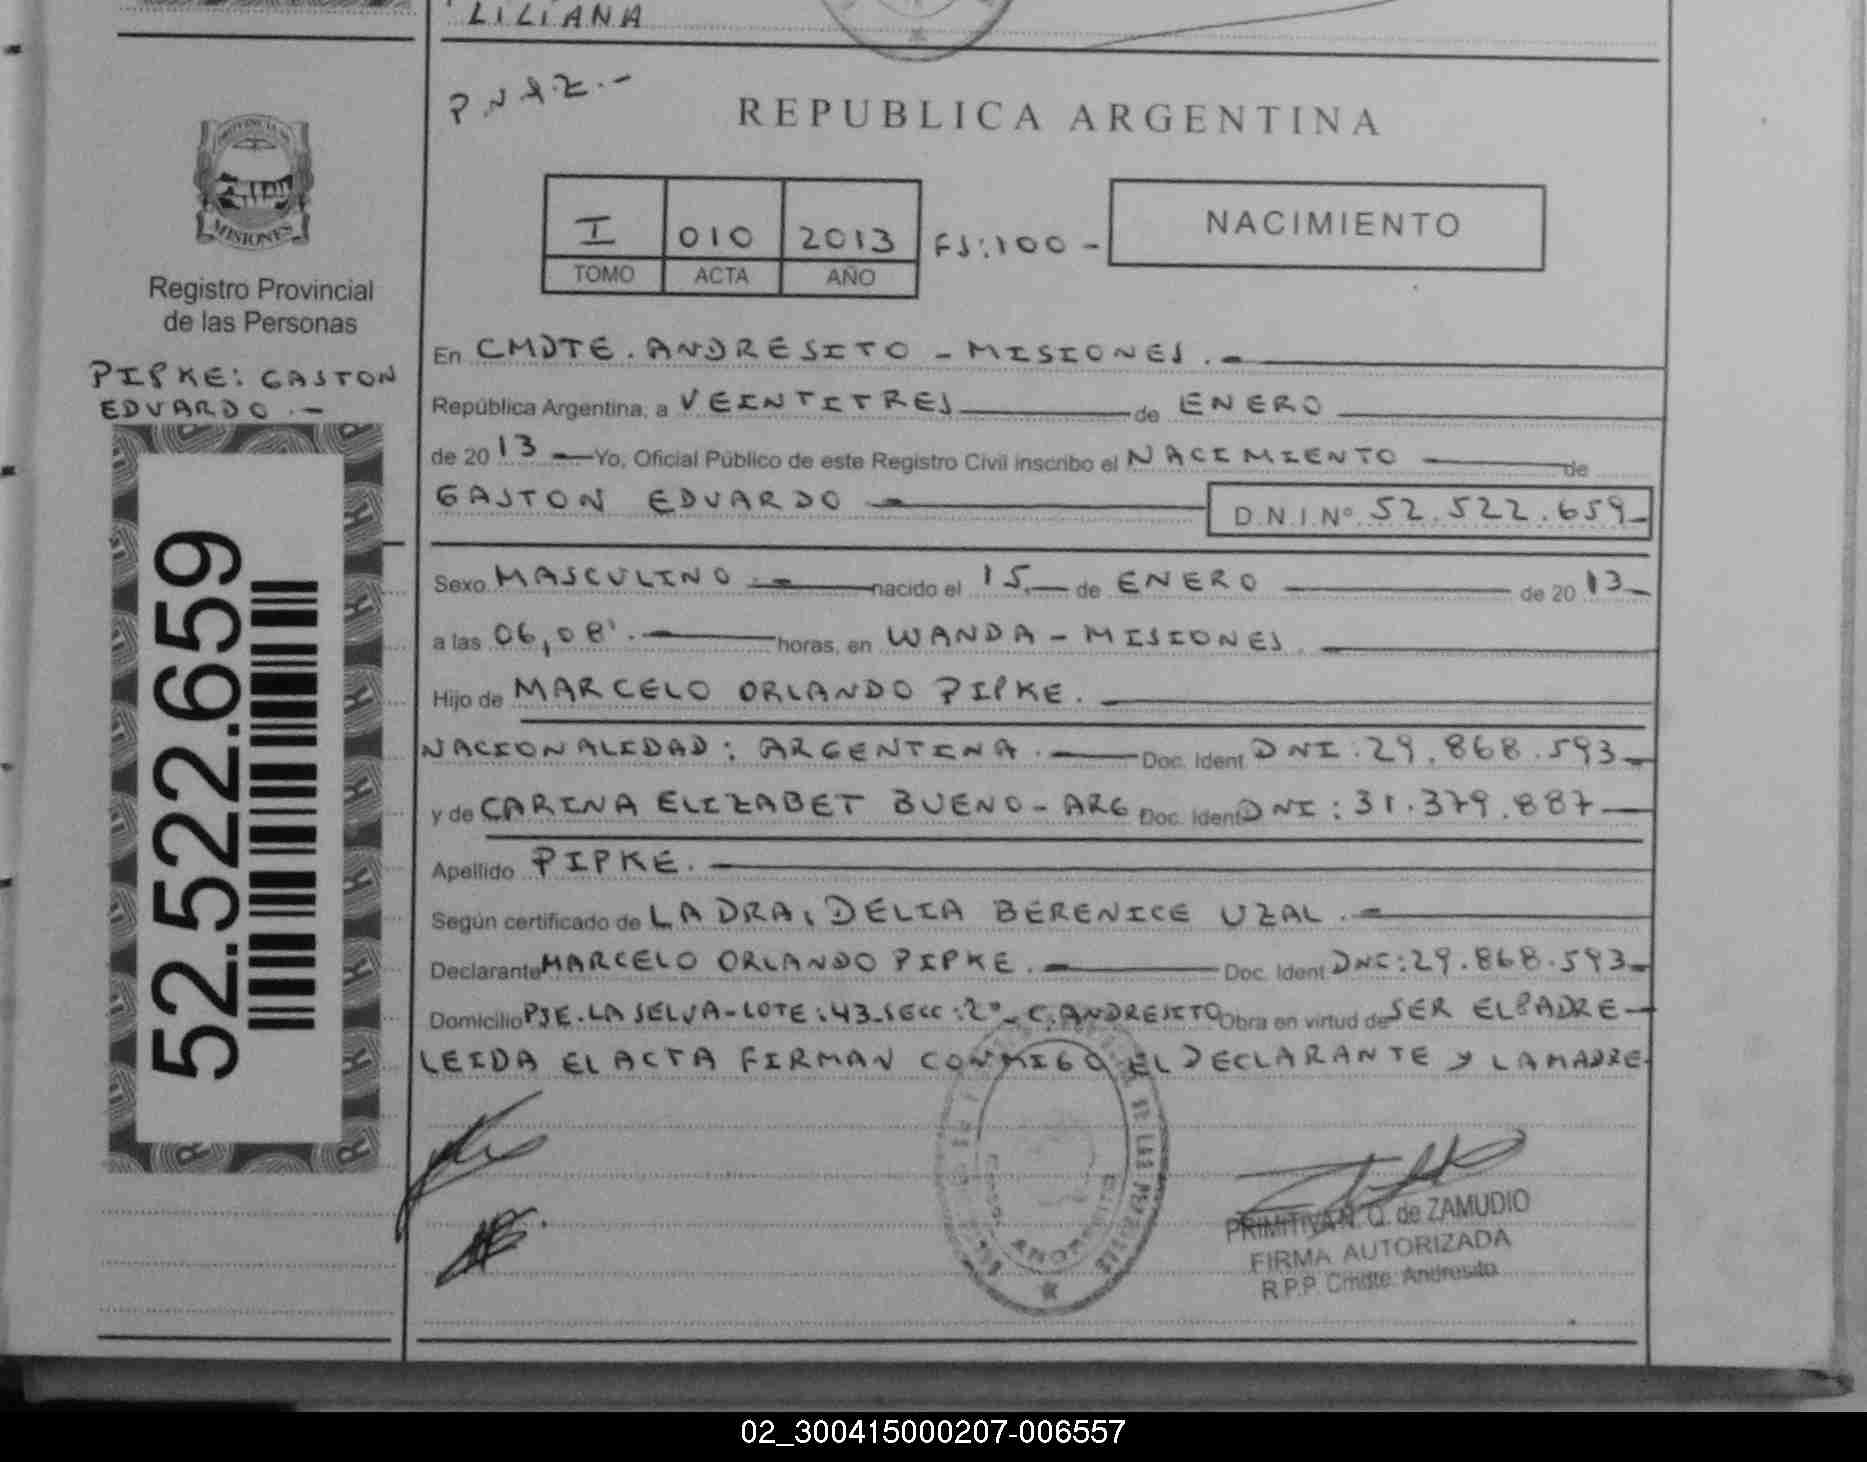 LILIANA
PNAZ.-
REPUBLICA ARGENTINA
PROVINCIA DE
MISIONES
I 010 2013 FS:100-
TOMO ACTA AÑO
NACIMIENTO
Registro Provincial
de las Personas
PIPKE: GASTON
EDUARDO.-
52.522.659
En CMDTE. ANDRESITO - MISIONES.-
República Argentina, a VEINTITRES de ENERO
de 2013 Yo, Oficial Público de este Registro Civil inscribo el NACIMIENTO de
GASTON EDUARDO D.N.I.Nº 52.522.659
Sexo MASCULINO.- nacido el 15 de ENERO de 2013
a las 06,08'.- horas, en WANDA - MISIONES.
Hijo de MARCELO ORLANDO PIPKE.
NACIONALIDAD: ARGENTINA. Doc. Ident DNI: 29.868.593
y de CARINA ELIZABET BUENO - ARG Doc. Ident DNI: 31.379.887
Apellido PIPKE.
Según certificado de LA DRA, DELIA BERENICE UZAL.-
Declarante MARCELO ORLANDO PIPKE. Doc. Ident DNI: 29.868.593
Domicilio PJE. LA SELVA - LOTE: 43-SECC: 2º - C. ANDRESITO Obra en virtud de SER EL PADRE
LEIDA EL ACTA FIRMAN CONMIGO EL DECLARANTE Y LA MADRE
PRIMITIVA N. Q. de ZAMUDIO
FIRMA AUTORIZADA
R.P.P. Cmdte. Andresito
02_300415000207-006557